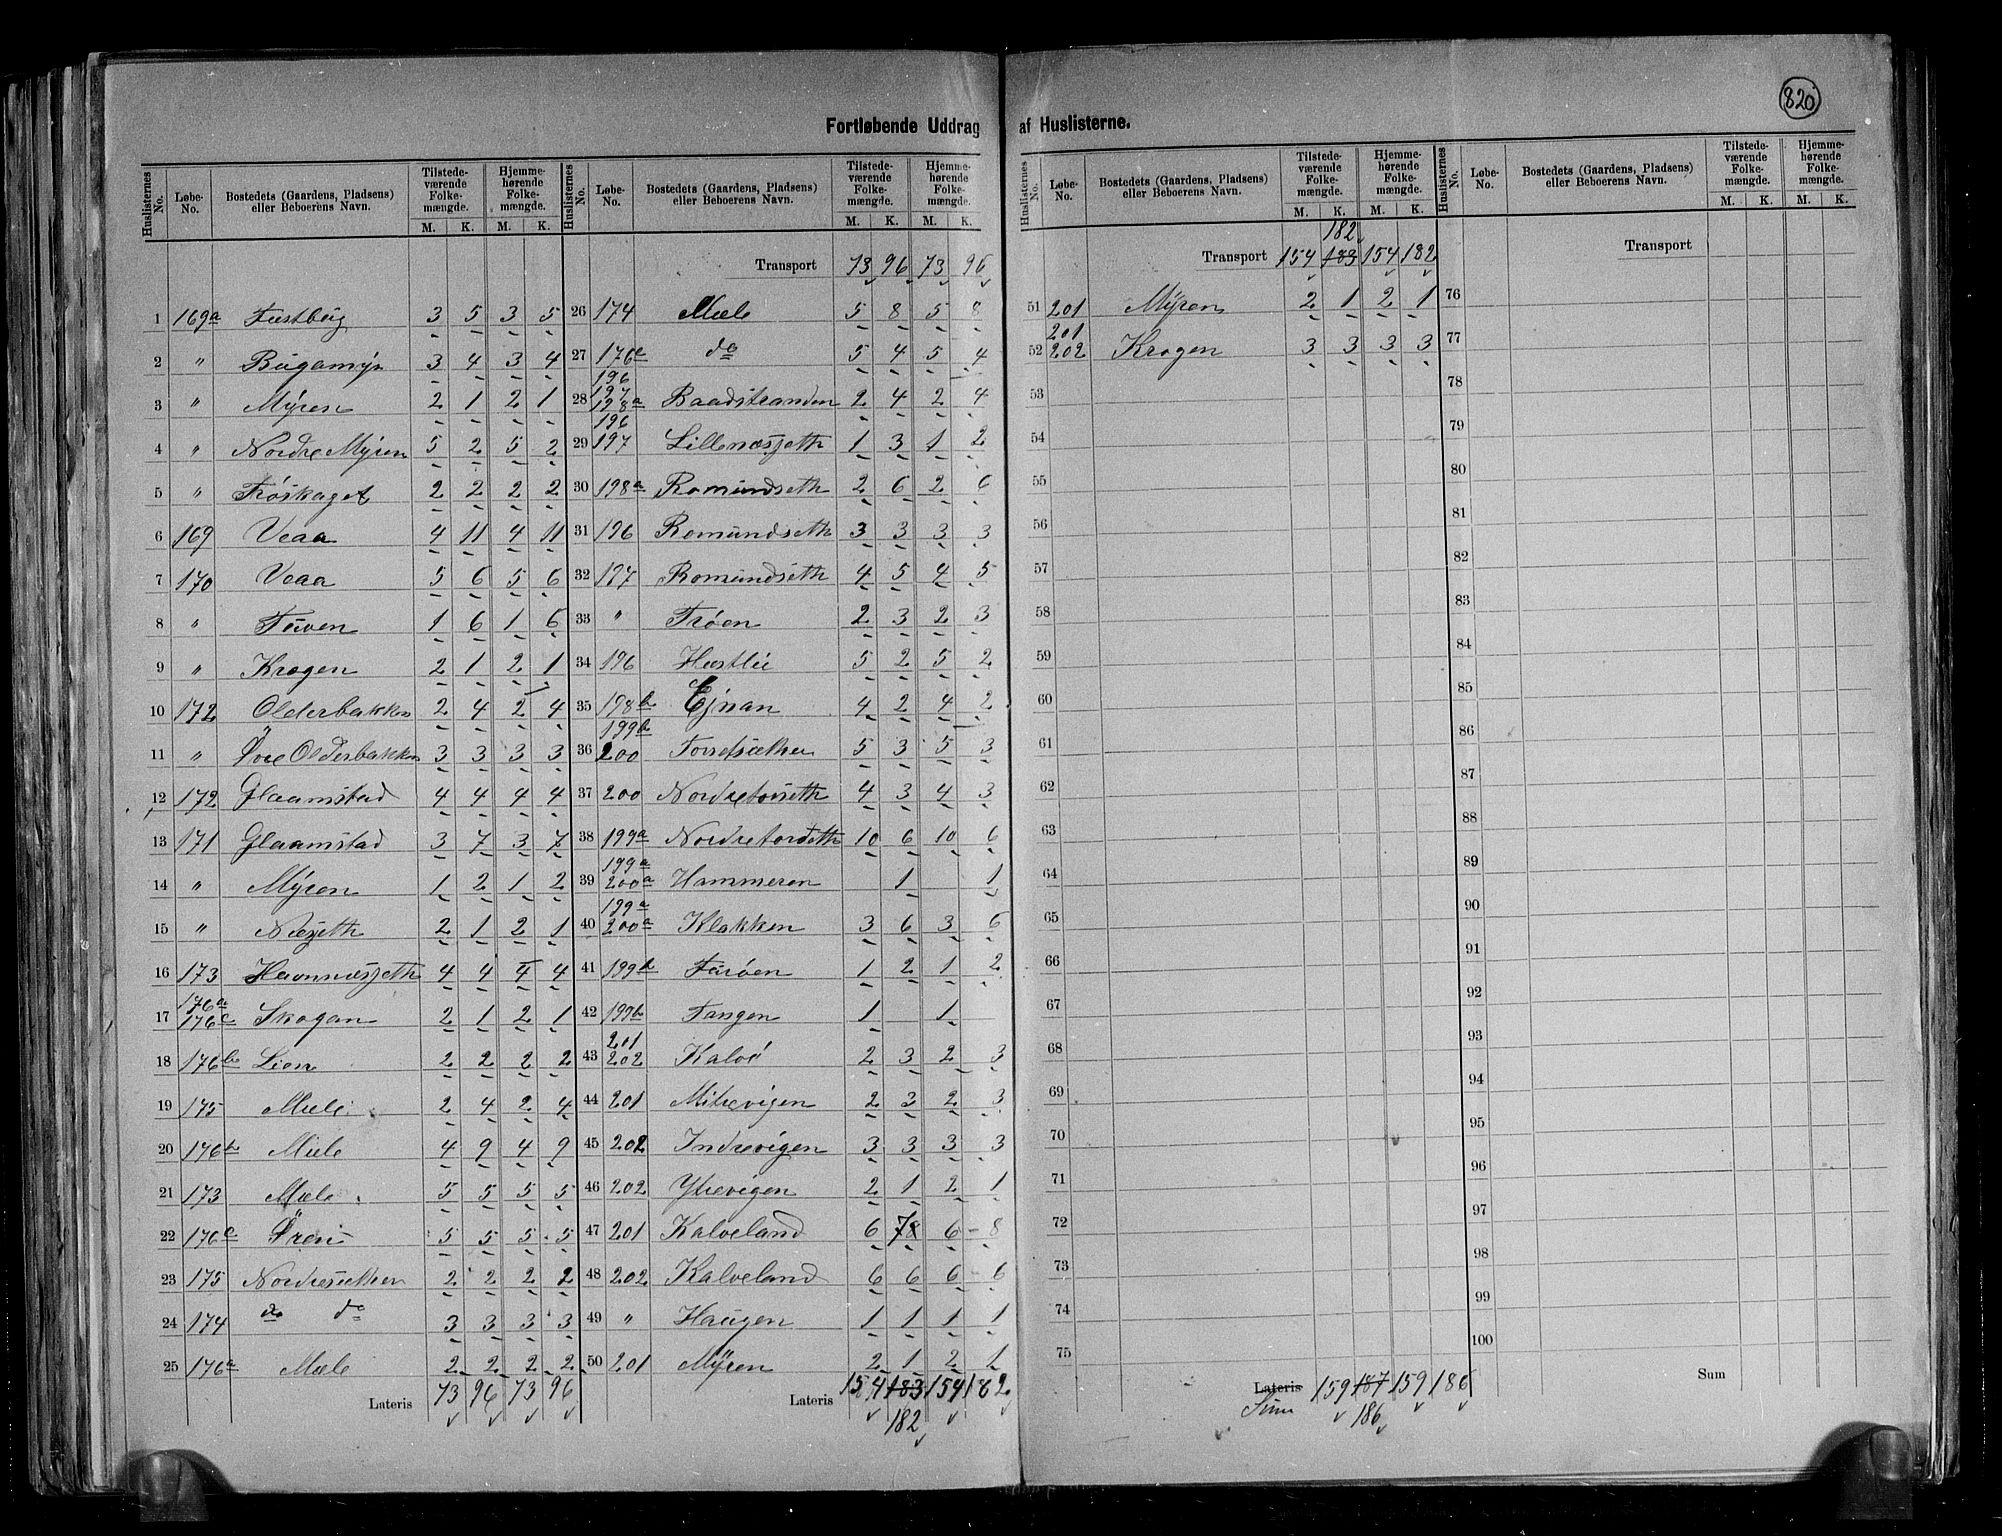 820
Fortløbende Uddrag af Huslisterne.
Huslisternes No. Løbe-No. Bostedets (Gaardens, Pladsens) eller Beboerens Navn. Tilstedeværende Folkemængde. M. K. Hjemmehørende Folkemængde. M. K.
1 169a Fæstbeig 3 5 3 5
2 " Bugamyr 3 4 3 4
3 " Myren 2 1 2 1
4 " Nordre Myren 5 2 5 2
5 " Frøskaget 2 2 2 2
6 169 Veaa 4 11 4 11
7 170 Veaa 5 6 5 6
8 " 1 6 1 6
9 " Krogen 2 1 2 1
10 172 Olderbakken 2 4 2 4
11 " Øvre Olderbakken 3 3 3 3
12 172 Glaamstad 4 4 4 4
13 171 Glaamstad 3 7 3 7
14 " Myren 1 2 1 2
15 " Næsjeth 2 1 2 1
16 173 Havnnæssjeth 4 4 4 4
17 176a 176c Skogan 2 1 2 1
18 176b Lien 2 2 2 2
19 175 Mæle 2 4 2 4
20 176b Mæle 4 9 4 9
21 173 Mæle 5 5 5 5
22 176c Øren 5 5 5 5
23 175 Nordresætken 2 2 2 2
24 174 do do 3 3 3 3
25 176a Mæle 2 2 2 2
Lateris 73 96 73 96
Huslisternes No. Løbe-No. Bostedets (Gaardens, Pladsens) eller Beboerens Navn. Tilstedeværende Folkemængde. M. K. Hjemmehørende Folkemængde. M. K.
Transport 73 96 73 96
26 174 Mæle 5 8 5 8
27 176c do 5 4 5 4
28 196 197 198a Baadstranden 2 4 2 4
29 196 197 Lillenæssjeth 1 3 1 2
30 198a Romundseth 2 6 2 6
31 196 Romundseth 3 3 3 3
32 197 Romundseth 4 5 4 5
33 " Trøen 2 3 2 3
34 196 Hestlie 5 2 5 2
35 198b Ejnan 4 2 4 2
36 199b 200 Torsetsætken 5 3 5 3
37 200 Nordretorseth 4 3 4 3
38 199a Nordretorseth 10 6 10 6
39 199a 200a Hammeren 1 1
40 199a 200a Klakken 3 6 3 6
41 199b Furøen 1 2 1 2
42 199b Tangen 1 1
43 201 202 Kalvø 2 3 2 3
44 201 Mitrevigen 2 3 2 3
45 202 Indrevigen 3 3 3 3
46 202 Ytrevigen 2 1 2 1
47 201 Kalveland 6 78 6 - 8
48 202 Kalveland 6 6 6 6
49 " Haugen 1 1 1 1
50 201 Myren 2 1 2 1
Lateris 154 183 154 182
182
Huslisternes No. Løbe-No. Bostedets (Gaardens, Pladsens) eller Beboerens Navn. Tilstedeværende Folkemængde. M. K. Hjemmehørende Folkemængde. M. K.
182
Transport 154 183 154 182
51 201 Myren 2 1 2 1
52 201 202 Krogen 3 3 3 3
53
54
55
56
57
58
59
60
61
62
63
64
65
66
67
68
69
70
71
72
73
74
75
Lateris 159 187 159 186
Sum 186
Huslisternes No. Løbe-No. Bostedets (Gaardens, Pladsens) eller Beboerens Navn. Tilstedeværende Folkemængde. M. K. Hjemmehørende Folkemængde. M. K.
Transport
76
77
78
79
80
81
82
83
84
85
86
87
88
89
90
91
92
93
94
95
96
97
98
99
100
Sum